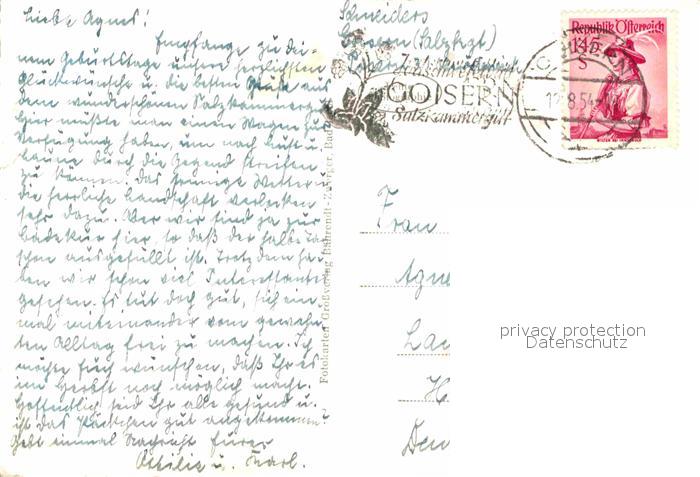 Liebe Agnes!
Empfange zu dei-
nem Geburtstage unsere herzlichsten
Glückwünsche u. die besten Grüße aus
dem wunderschönen Salzkammergut
Hier müßte man einen Wagen zur
Verfügung haben, um nach Lust u.
Laune durch die Gegend streifen
zu können. Das sonnige Wetter u.
die herrliche Landschaft verlocken
sehr dazu. Aber wir sind ja zur
Badekur hier, so daß der halbe Tag
schon ausgefüllt ist. Trotzdem ha-
ben wir schon viel Interessantes
gesehen. Es tut doch gut, sich ein-
mal miteinander vom gewohn-
ten Alltag frei zu machen. Ich
möchte Euch wünschen, daß Ihr es
im Herbst noch möglich macht.
Hoffentlich seid Ihr alle gesund u.
ist das Päckchen gut angekommen?
Gebt einmal Nachricht Eurer
Ottilie u. Karl.
Schneiders
Goisern (Salzkgt)
GOISERN
Salzkammergut
12.8.54
Republik Österreich
1.45
S
Fotokarten Großverlag Bährendt
Frau
Agne
privacy protection
Datenschutz